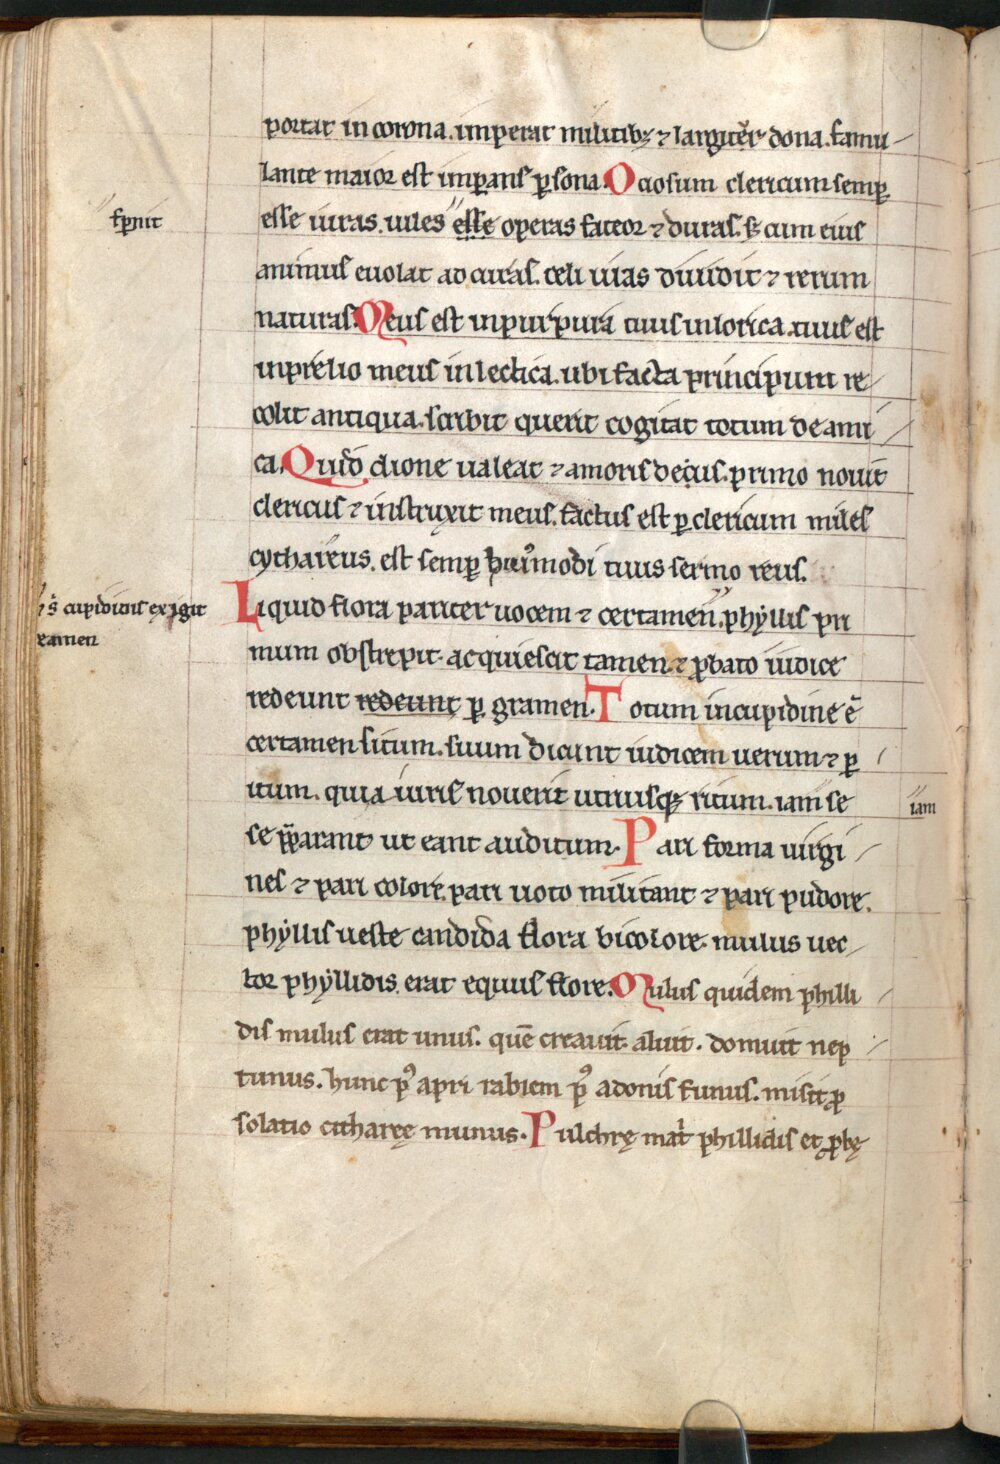 portat in corona. imperat militibꝫ ⁊ larguẽr dona. famu
lante maior est imꝑans ꝑsona. Ociosum clericum semꝑ
fꝑnit
esse iuras. uiles esse operas fateor ⁊ duras. sꝫ cum eius
animus euolat ad curas. celi uias diuidit ⁊ rerum
naturas. Meus est in purpura tuus in lorica. tuus est
in prelio meus in lectica. ubi facta principum re
colit antiqua. scribit querit cogitat totum de ami
ca. Quid dione ualeat ⁊ amoris decus. primo nouit
clericus ⁊ instruxit meus. factus est ꝑ clericum miles
cythareus. est semꝑ huiꝰmodi tuus sermo reus.
s̄ cupidinis exigit
examen
Liquid flora pariter uocem ⁊ certamen. phyllis pri
mum obstrepit. acquiescit tamen. ⁊ ꝓbato iudice
redeunt redeunt ꝑ gramen. Totum in cupidine ē
certamen situm. suum dicunt iudicem uerum ⁊ ꝑ
itum. quia iuris nouerit utriusqꝫ ritum. iam se
iam
se p̄parant ut eant auditum. Pari forma uirgi
nes ⁊ pari colore. pari uoto militant ⁊ pari pudore.
phyllis ueste candida flora bicolore. mulus uec
tor phyllidis erat equus flore. Mulus quidem philli
dis mulus erat unus. quē creauit. aluit. domuit nep
tunus. hunc pꝰ apri rabiem pꝰ adonis funus. misit ꝓ
solatio cithareę munus. Pulchrę mat͛ phillidis et ꝓbę